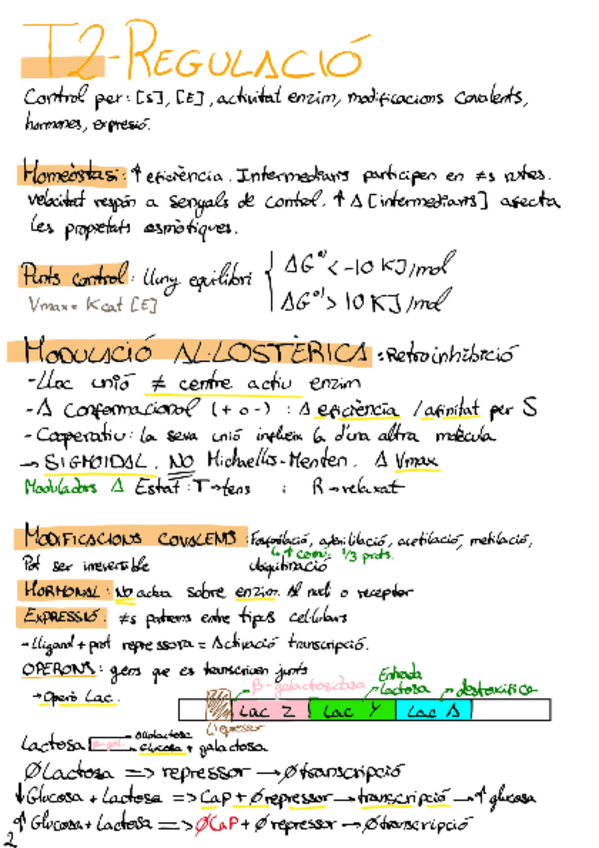 T2-REGULACIÓ
Control per: [S], [E], activitat enzim, modificacions covalents,
hormones, expresió.
Homeòstasi: ↑ eficiència. Intermediaris participen en ≠s rutes.
velocitat respón a senyals de control. ↑ Δ [intermediaris] afecta
les propietats osmòtiques.
Punts control: Lluny equilibri { ΔG°' < -10 KJ/mol
Vmax = Kcat [E] ΔG°' > 10 KJ/mol
MODULACIÓ AL·LOSTÈRICA: Retroinhibició
- Lloc unió ≠ centre actiu enzim
- Δ Conformacional (+ o -) : Δ eficiència / afinitat per S
- Cooperatiu: la seva unió influeix la d'una altra molècula
→ SIGMOIDAL. NO Michaellis-Menten. Δ Vmax
Moduladors Δ Estat: T→tens i R→relaxat
MODIFICACIONS COVALENTS: Fosforilació, adenililació, acetilació, metilació,
↳ ↑ comú. 1/3 prots.
Pot ser irreversible ubiquitinació
HORMONAL: No actua sobre enzim. Al nucli o receptor
EXPRESSIÓ: ≠s patrons entre tipus cel·lulars
- Lligand + prot repressora = Δ activació transcripció.
OPERONS: gens que es transcriuen junts
→ Operó Lac.
β-galactosidasa
Entrada
lactosa
destoxifica
Lac Z Lac Y Lac A
repressor
Lactosa β-gal. allolactosa
Glucosa + galactosa
Ø Lactosa => repressor → Ø transcripció
↓ Glucosa + Lactosa => CaP + Ø repressor → transcripció → ↑ glucosa
↑ Glucosa + Lactosa => Ø CaP + Ø repressor → Ø transcripció
2